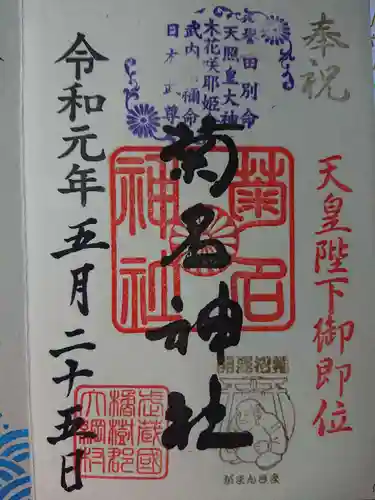 奉祝
天皇陛下御即位
誉田別命
天照皇大神
木花咲耶姫命
武内宿禰命
日本武尊
菊名神社
菊名
神社
がまんさま
武蔵國
橘樹郡
大綱村
令和元年五月二十五日